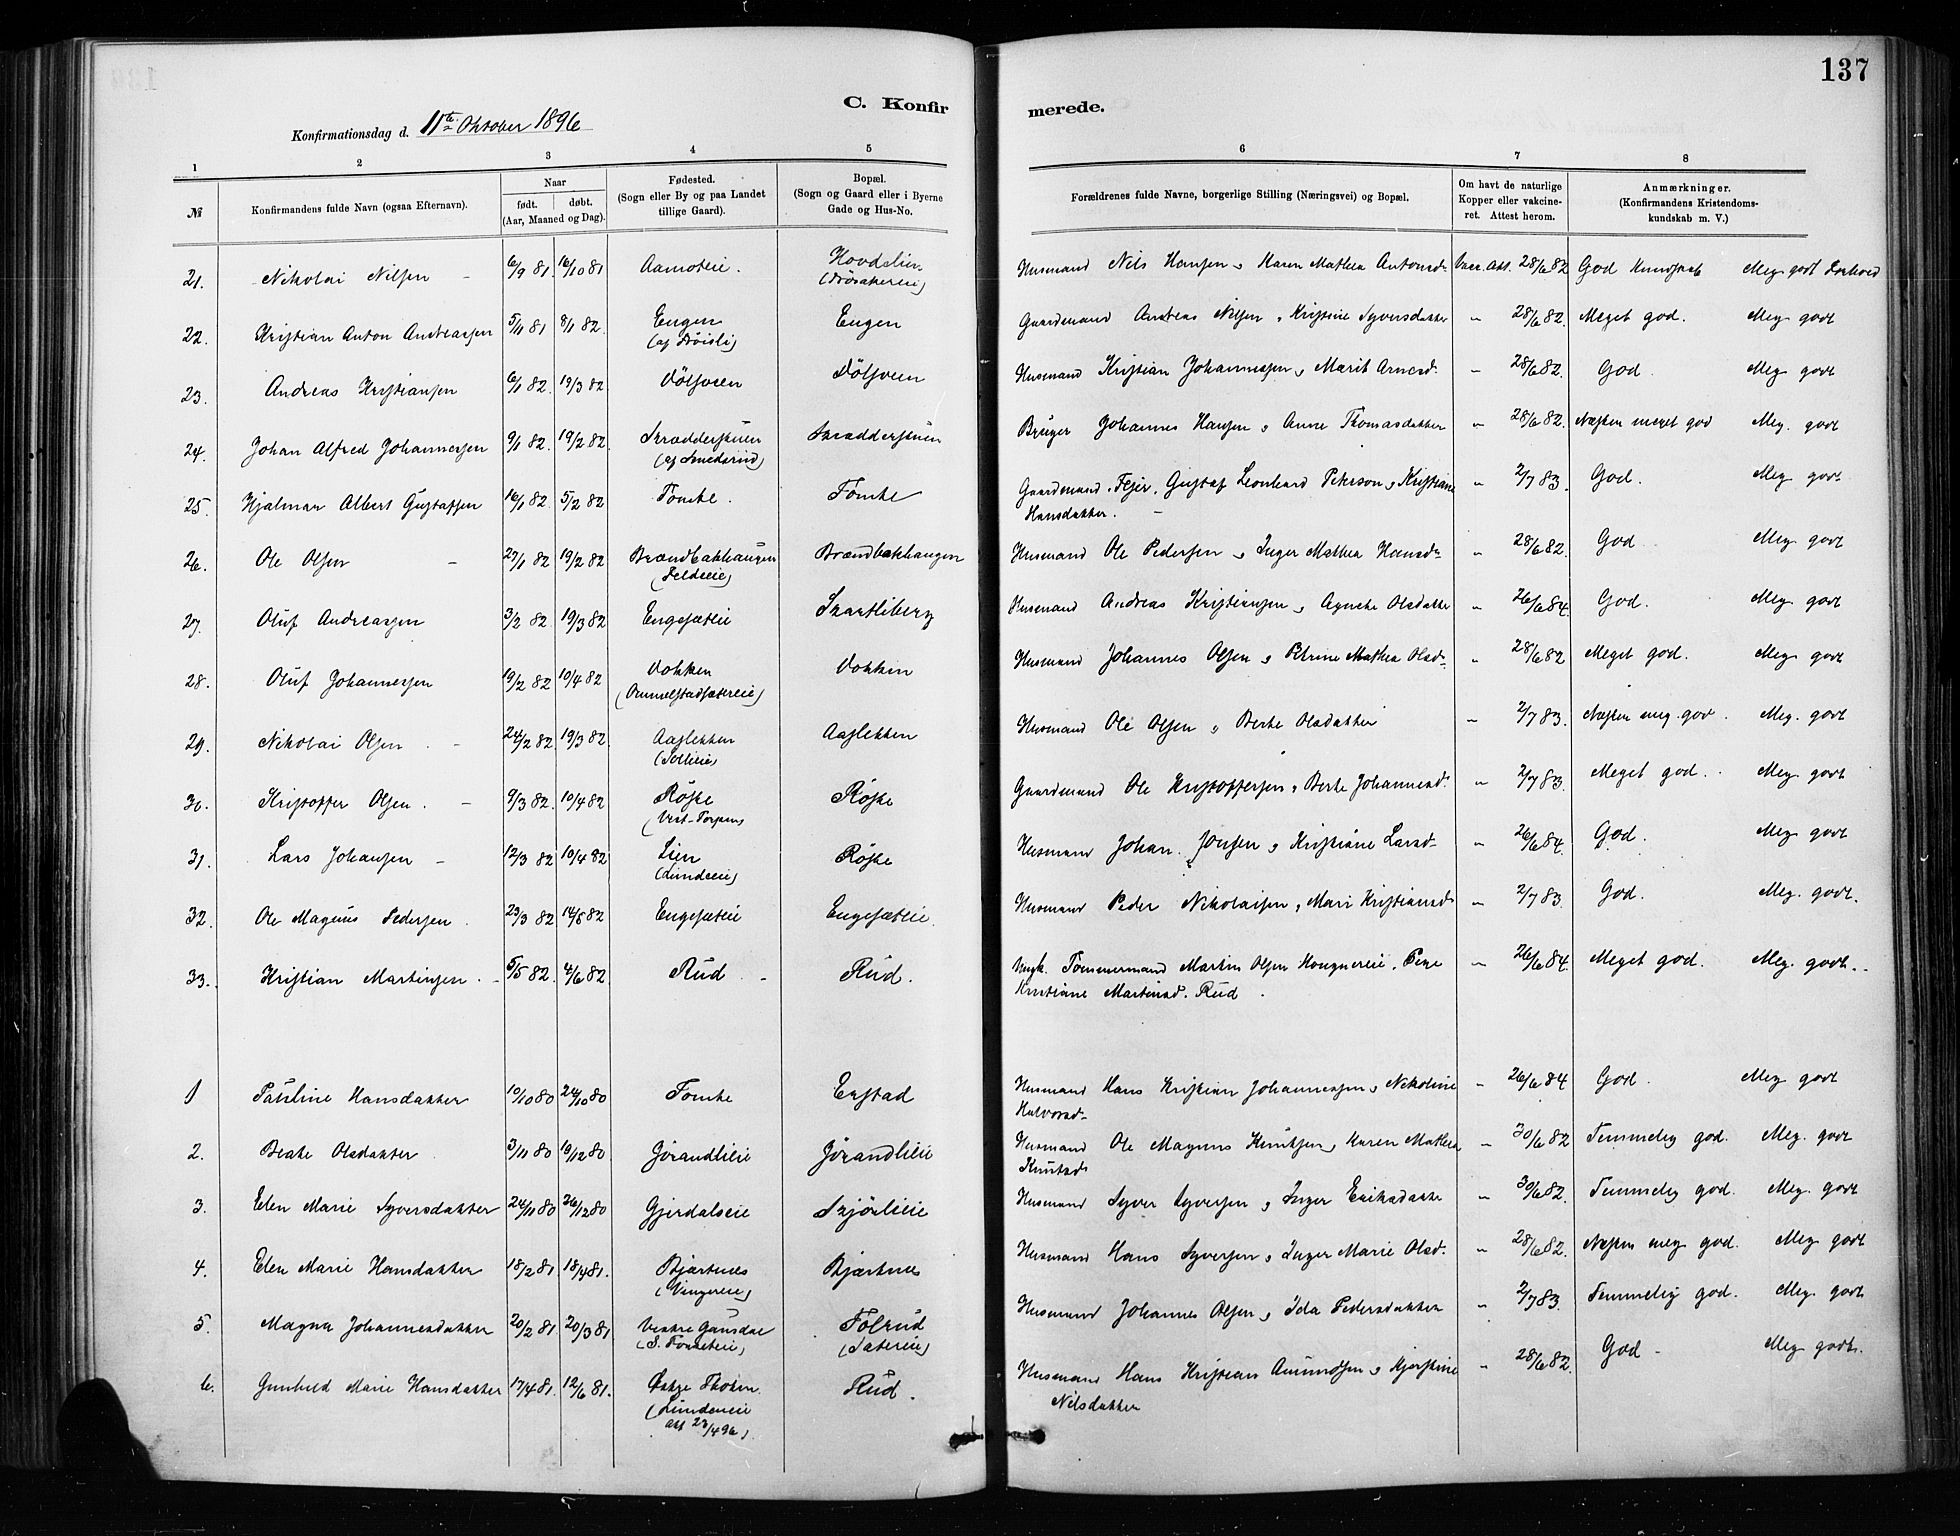 137
C. Konfirmerede.
Konfirmationsdag d. 11te Oktober 1896
1 2 3 4 5 6 7 8
№ Konfirmandens fulde Navn (ogsaa Efternavn). Naar født. døbt. (Aar, Maaned og Dag). Fødested. (Sogn eller By og paa Landet tillige Gaard). Bopæl. (Sogn og Gaard eller i Byerne Gade og Hus-No. Forældrenes fulde Navne, borgerlige Stilling (Næringsvei) og Bopæl. Om havt de naturlige Kopper eller vakcineret. Attest herom. Anmærkninger. (Konfirmandens Kristendomskundskab m. V.)
21. Nikolai Nilsen 6/9 81 16/10 81 Aamoteie. Hovdelien Husmand Nils Hansen, Karen Mathea Antonsd. Vacc. Att. 28/6 82 God Kundskab Meg godt Forhold
22. Kristian Anton Andreassen 5/11 81 8/1 82. Engen (af Tröisli) Engen Gaardmand Andreas Nilsen, Kristine Syversdatter " 28/6 82. Meget god. Meg godt
23. Andreas Kristiansen 6/1 82. 19/3 82 Döllveen Döllveen Husmand Kristian Johannessen, Marit Arnesd. " 28/6 82. God. Meg godt
24. Johan Alfred Johannessen 9/1 82. 19/2 82. Skrædderstuen (af Smedsrud) Skrædderstuen Bruger Johannes Hansen, Anne Thomasdatter " 28/6 82. Næsten meget god Meg. godt
25. Hjalmar Albert Gustafsen 16/1 82. 5/2 82 Tomte. Tomte Gaardmand, Fejer, Gustaf Leonhard Peterson, Kristiane " 2/7 83. God. Meg godt
Hansdatter.
26. Ole Olsen 27/1 82 19/2 82 Brændbakhaugen Brændbakhaugen Husmand Ole Pedersen, Inger Mathea Hansd. " 28/6 82. God Meg. godt
27. Oluf Andreassen 3/2 82. 19/3 82 Engesæteie Svartliberg Husmand Andreas Kristiansen, Agnethe Olsdatter " 26/6 84. God. Meg. godt
28. Oluf Johannessen 19/2 82. 10/4 82 Dokken Dokken Husmand Johannes Olsen, Petrine Mathea Olsd. " 28/6 82 Meget god. Meg godt
29. Nikolai Olsen 24/2 82. 19/3 82. Aaslekken (Sollieie) Aaslekken Husmand Ole Olsen, Berte Olsdatter " 2/7 83. Næsten meg. god. Meg. godt
30. Kristoffer Olsen. 9/3 82. 10/4 82 Röste (Vest-Torpen) Röste Gaardmand Ole Kristoffersen, Berte Johannesd. " 2/7 83. Meget god. Meg. godt
31. Lars Johansen 12/3 82 10/4 82 Lien (Lundseie) Röste Husmand Johan Jonsen, Kristiane Larsd. " 26/6 84. God. Meg godt
32. Ole Magnus Pedersen. 23/3 82 14/5 82 Engesæteie Engesæteie. Husmand Peder Nikolaisen, Mari Kristiansd. " 2/7 83. God. Meg. godt.
33. Kristian Martinsen. 5/5 82. 4/6 82. Rud Rud. Ungk. Tømmermand Martin Olsen Haugnereie, Pige " 26/6 84. Meget god. Meg. godt.
Kristiane Martinsd. Rud.
1 Pauline Hansdatter 10/10 80 24/10 80 Tomte Enstad Husmand Hans Kristian Johannessen, Nikoline " 26/6 84 God. Meg godt
Halvorsd.
2. Beate Olsdatter 3/11 80 19/12 80 Gørandlieie Gørandlieie Husmand Ole Magnus Knutsen, Karen Mathea " 30/6 82 Temmelig god. Meg. godt
Knutsd.
3. Elen Marie Syversdatter 24/11 80 26/12 80 Gjerdalseie Skjörlieie Husmand Syver Syversen, Inger Eriksdatter " 30/6 82. Temmelig god. Meg. godt
4. Elen Marie Hansdatter 18/2 81. 18/4 81. Bjærtnes (Vingereie) Bjærtnes Husmand Hans Syversen, Inger Marie Olsd. " 28/6 82. Næsten meg god. Meg godt
5. Magna Johannesdatter 20/2 81. 20/3 81 Vestre Gausdal Folrud (Sætereie) Husmand Johannes Olsen, Ida Pedersdatter " 2/7 83. Temmelig god. Meg. godt
6. Gunhild Marie Hansdatter 17/4 81. 12/6 81. Østre Thoten (Lundeneie att 23/4 96). Rud. Husmand Hans Kristian Amundsen, Kjerstine " 28/6 82. God Meg godt.
Nilsdatter